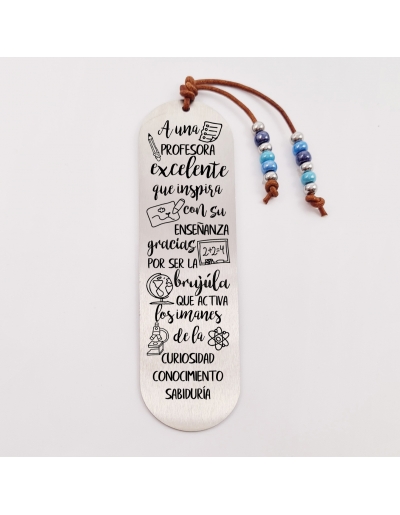 A una
PROFESORA
excelente
que inspira
con su
ENSEÑANZA
gracias
2+2=4
POR SER LA
brújúla
QUE ACTIVA
los imanes
de la
CURIOSIDAD
CONOCIMIENTO
SABIDURÍA